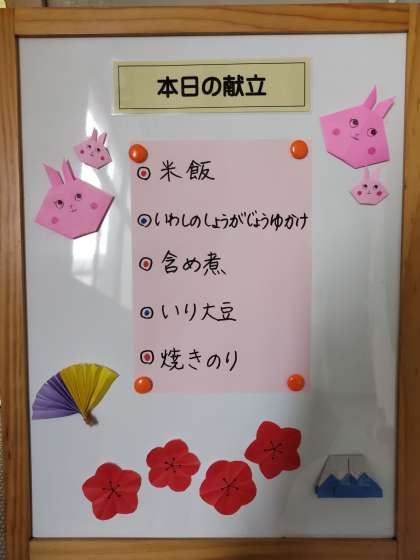 本日の献立
米飯
いわしのしょうがじょうゆかけ
含め煮
いり大豆
焼きのり